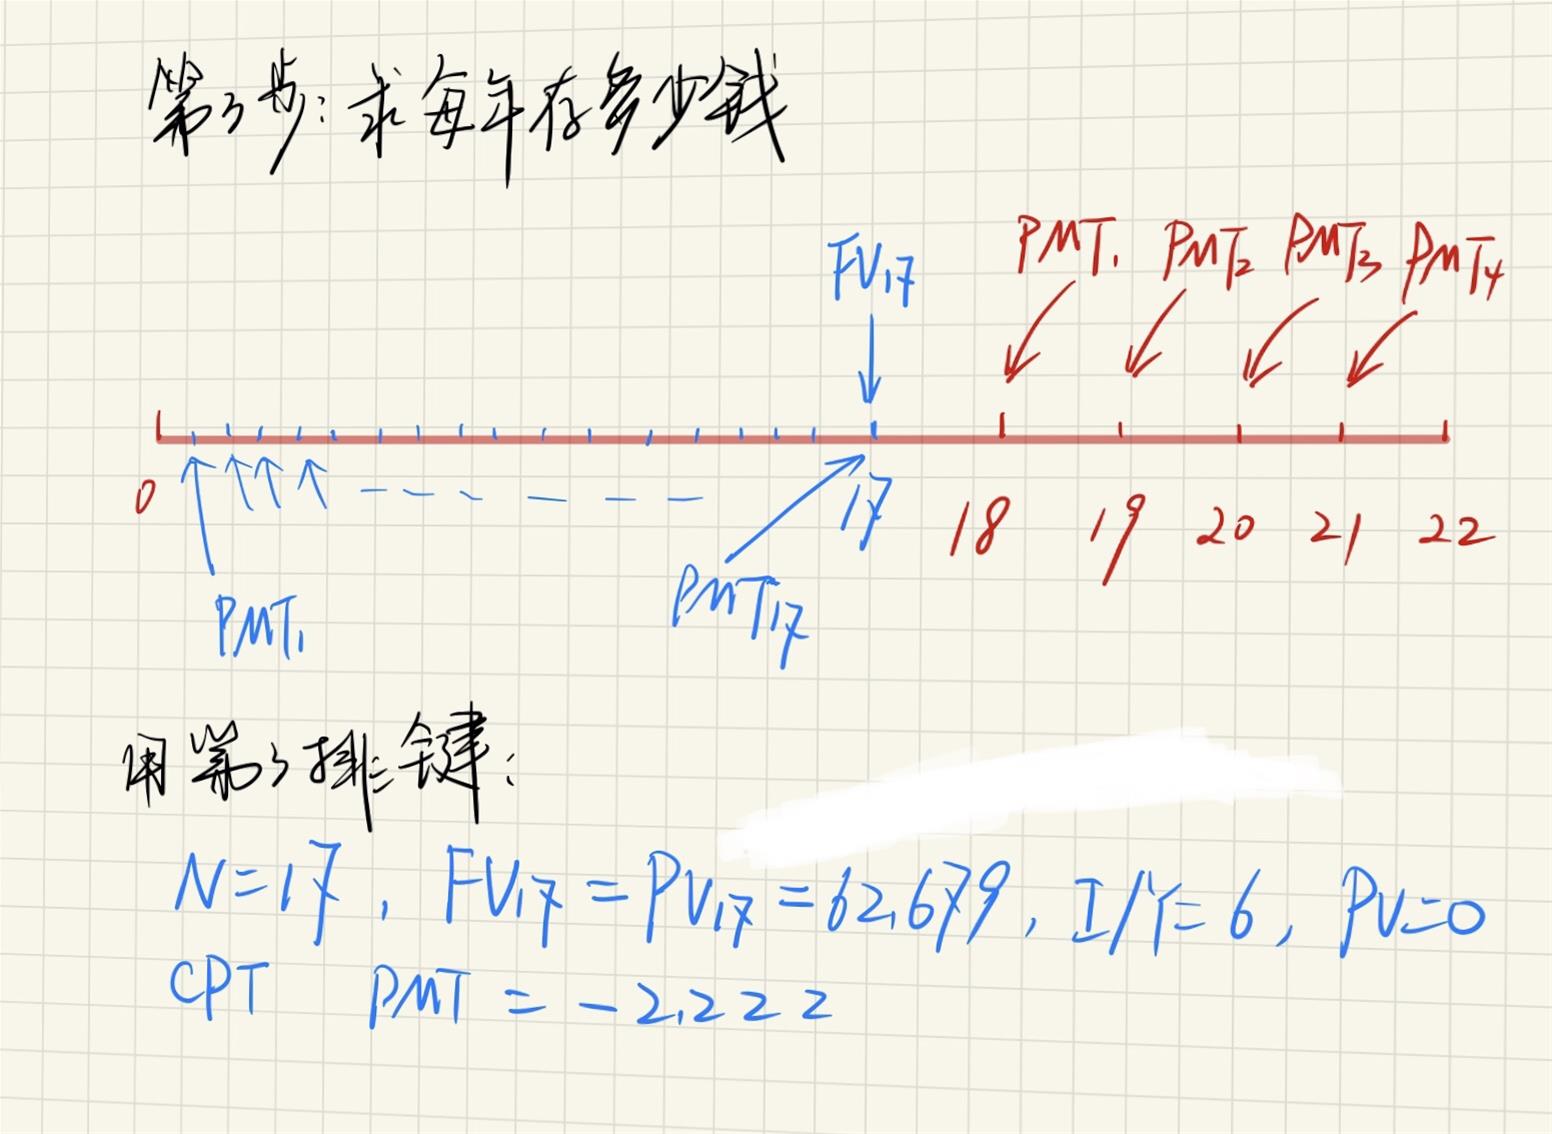 第3步: 求每年存多少钱
FV17 PMT1 PMT2 PMT3 PMT4
0 17 18 19 20 21 22
PMT1 PMT17
用第3排键:
N=17, FV17=PV17=62,679, I/Y=6, PV=0
CPT PMT = -2,222